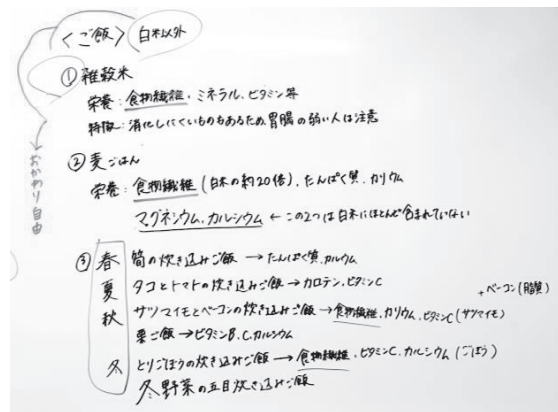 〈ご飯〉 白米以外
① 雑穀米
栄養:食物繊維・ミネラル、ビタミン等
特徴:消化しにくいものもあるため胃腸の弱い人は注意
おかわり自由
② 麦ごはん
栄養:食物繊維(白米の約20倍)、たんぱく質、カリウム
マグネシウム、カルシウム ← この2つは白米にほとんど含まれていない
③ 春 筍の炊き込みご飯 →たんぱく質、カルウム
夏 タコとトマトの炊き込みご飯 →カロテン、ビタミンC
+ベーコン(脂質)
秋 サツマイモとベーコンの炊き込みご飯 →食物繊維、カリウム、ビタミンC(サツマイモ)
栗ご飯→ビタミンB、C、カルシウム
冬 とりごぼうの炊き込みご飯 →食物繊維、ビタミンC、カルシウム(ごぼう)
冬野菜の五目炊き込みご飯